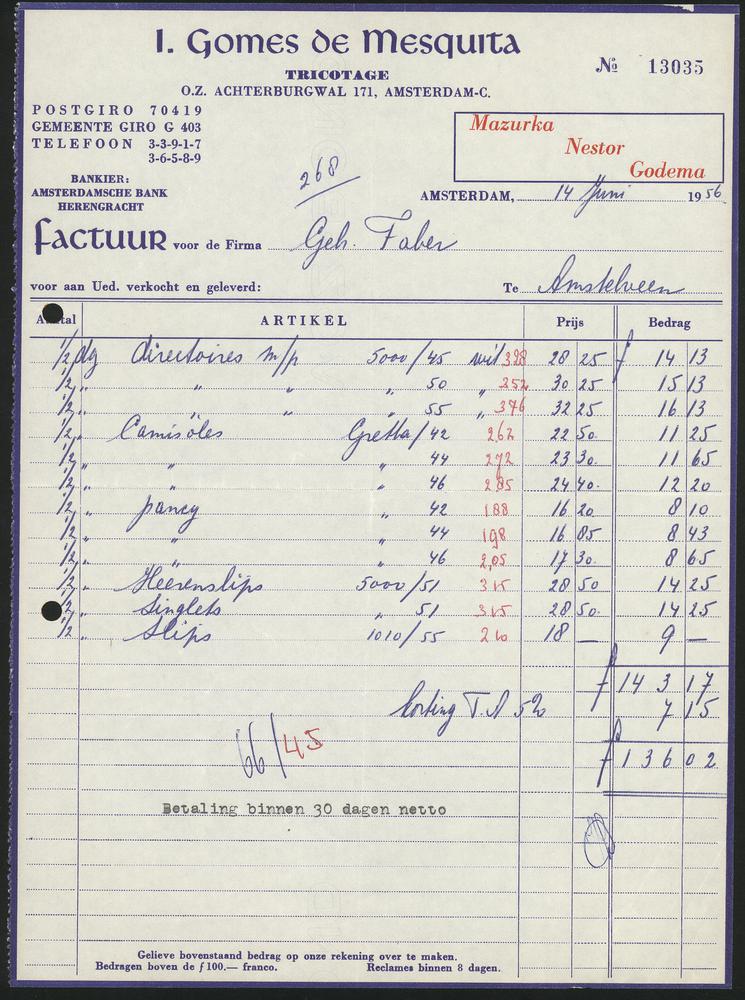 I. Gomes de Mesquita
TRICOTAGE
№ 13035
O.Z. ACHTERBURGWAL 171, AMSTERDAM-C.
POSTGIRO 70419
GEMEENTE GIRO G 403
TELEFOON 3-3-9-1-7
3-6-5-8-9
Mazurka
Nestor
Godema
BANKIER:
AMSTERDAMSCHE BANK
HERENGRACHT
268
AMSTERDAM, 14 Juni 1956
Factuur voor de Firma Geh. Faber
voor aan Ued. verkocht en geleverd: Te Amstelveen
Aantal ARTIKEL Prijs Bedrag
1/2 dg directoires m/p 5000/45 wit 328 28 25 f 14 13
1/2 " " " " 50 " 352 30 25 15 13
1/2 " " " " 55 " 376 32 25 16 13
1/2 " Camisoles Gretta/42 262 22 50 11 25
1/2 " " " 44 272 23 30 11 65
1/2 " " " 46 285 24 40 12 20
1/2 " pancy " 42 188 16 20 8 10
1/2 " " " 44 198 16 85 8 43
1/2 " " " 46 2,05 17 30 8 65
1/2 " Heerenslips 5000/51 315 28 50 14 25
1/2 " Singlets " 51 315 28 50 14 25
1/2 " Slips 1010/55 210 18 — 9 —
f 143 17
korting 5% 7 15
f 136 02
66/45
Betaling binnen 30 dagen netto
Gelieve bovenstaand bedrag op onze rekening over te maken.
Bedragen boven de f 100.— franco. Reclames binnen 8 dagen.